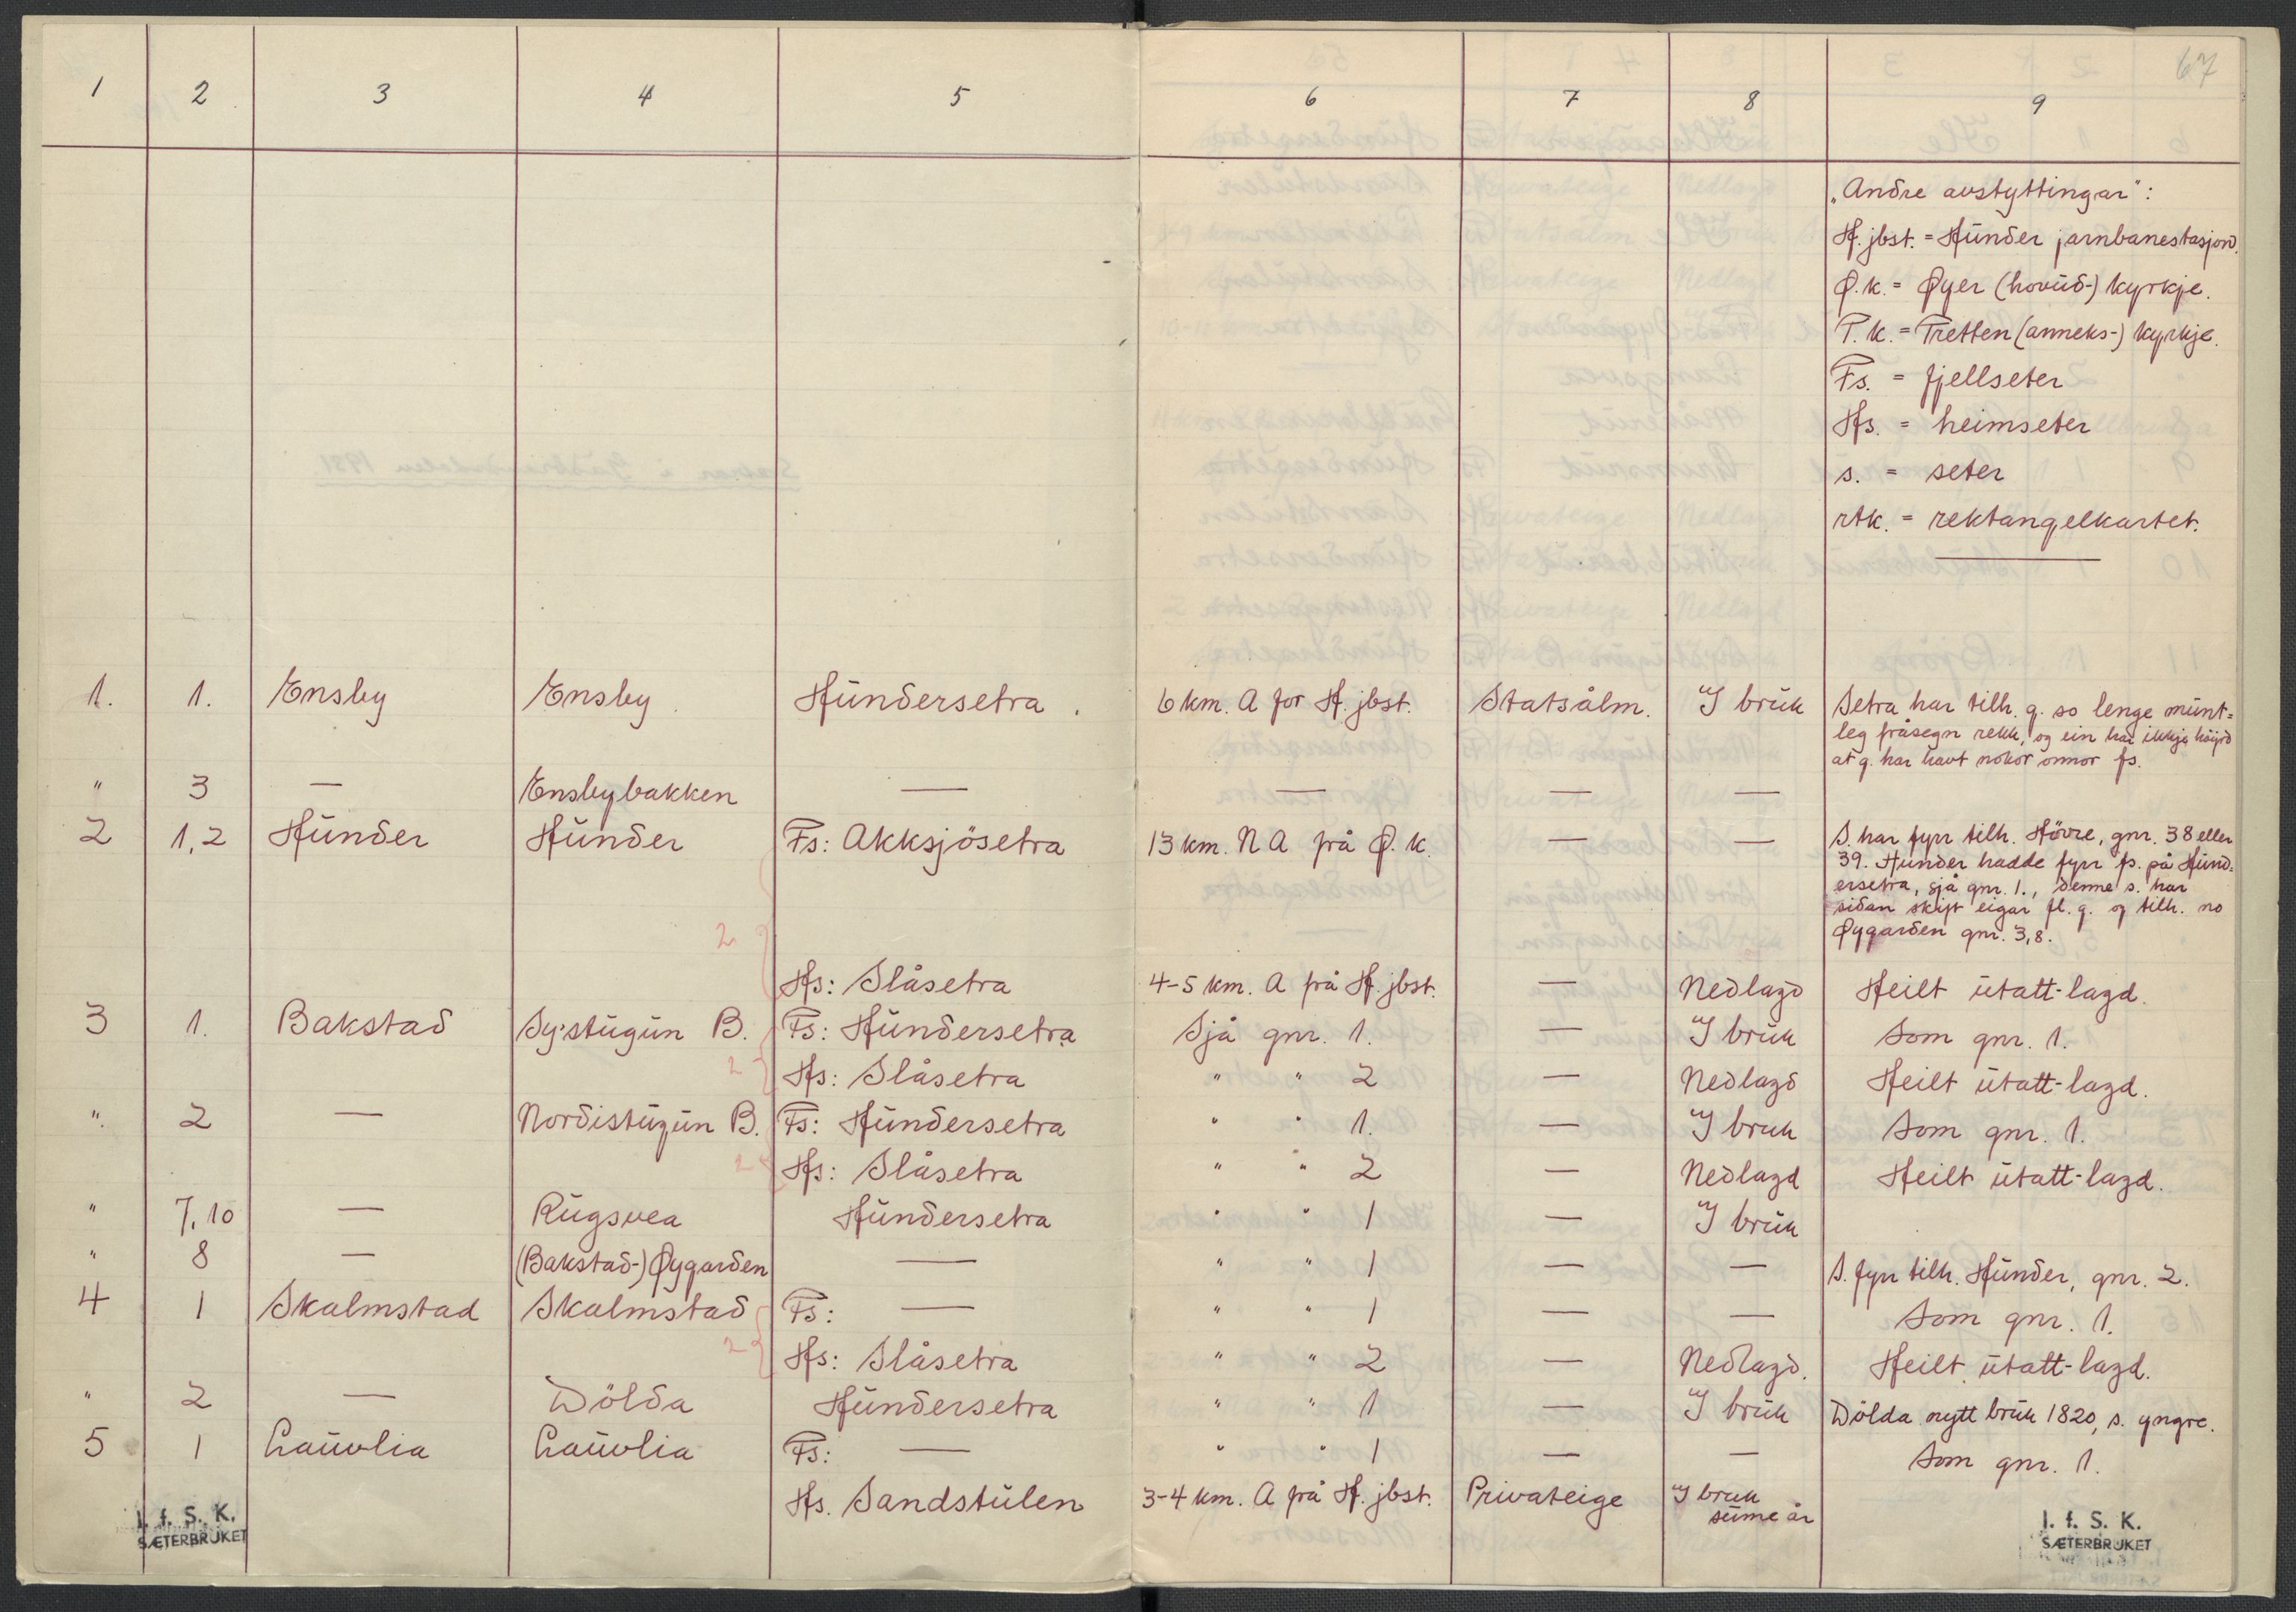 67
1 2 3 4 5 6 7 8 9
„Andre avstyttingar":
H. jbst. = Hunder jarnbanestasjon.
Ø. k. = Øyer (hovud-) kyrkje.
T. k. = Tretten (anneks-) kyrkje.
Fs. = fjellseter
Hs. = heimseter
s. = seter
rtk. = rektangelkartet.
1. 1. Ensby Ensby Hundersetra. 6 km. A for H. jbst. Statsålm. I bruk Setra har tilh. g. so lenge munt-
leg fråsegn rekk, og ein har ikkje høyrd
at g. har havt nokor onnor fs.
" 3 — Ensbybakken — — — —
2 1,2 Hunder Hunder Fs: Akksjösetra 13 km. N A frå Ø. k. — — S. har fyrr tilh. Hövre, gnr. 38 eller
39. Hunder hadde fyrr fs. på Hund-
ersetra, sjå gnr. 1., denne s. har
sidan skift eigar fl. g. og tilh. no
Øygarden gnr. 3,8.
2
Hs: Slåsetra 4-5 km. A frå H. jbst. — Nedlagd Heilt utatt-lagd.
3 1. Bakstad Sy'stugun B. Fs: Hundersetra Sjå gnr. 1. — I bruk Som gnr. 1.
2 Hs: Slåsetra " " 2 — Nedlagd Heilt utatt-lagd.
" 2 — Nordistugun B. Fs: Hundersetra " " 1. — I bruk Som gnr. 1.
2 Hs: Slåsetra " " 2 — Nedlagd Heilt utatt-lagd.
" 7,10 — Rugsvea Hundersetra " " 1 — I bruk
" 8 — (Bakstad-) Øygarden — " " 1 — — S. fyrr tilh. Hunder, gnr. 2.
4 1 Skalmstad Skalmstad Fs: — " " 1 — — Som gnr. 1.
2 Hs: Slåsetra " " 2 — Nedlagd. Heilt utatt-lagd.
" 2 — Dölda Hundersetra " " 1 — I bruk Dölda nytt bruk 1820, s. yngre.
5 1 Lauvlia Lauvlia Fs: — " " 1 — — Som gnr. 1.
Hs. Sandstulen 3-4 km. A frå H. jbst. Privateige I bruk
sume år
I. f. S. K.
SÆTERBRUKET
I. f. S. K.
SÆTERBRUKET